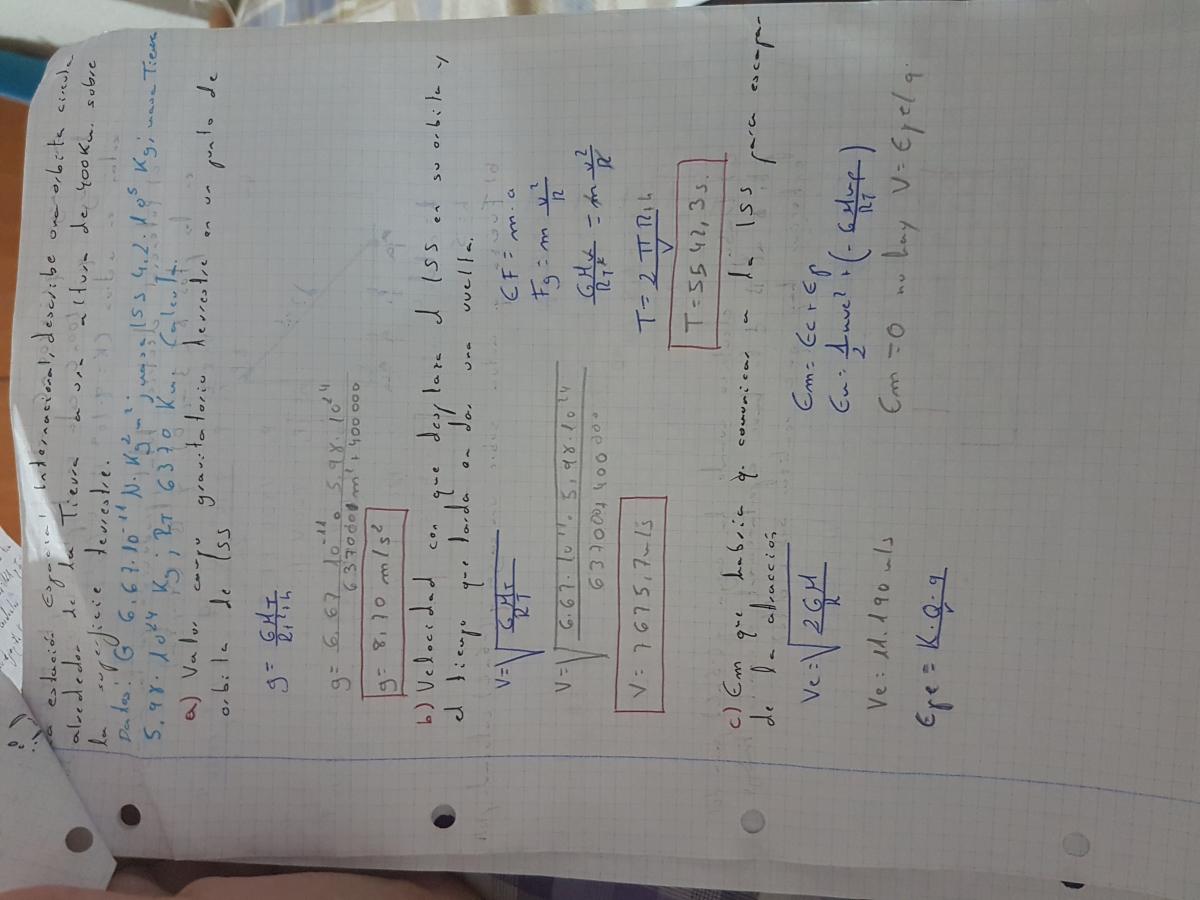 La estación Espacial Internacional, describe una orbita circula
alrededor de la Tierra a una altura de 400 Km. sobre
la superficie terrestre.
Datos: G 6,67·10⁻¹¹ N·Kg² m²; masa ISS 4,2·10⁵ Kg; masa Tierra
5,98·10²⁴ Kg; RT 6370 Km. Calcula.
a) Valor campo gravitatorio terrestre en un punto de
orbita de ISS
g= GMT/RT²+h
g= 6,67·10⁻¹¹ · 5,98·10²⁴ / 6370000 m²+400000
g= 8,70 m/s²
b) Velocidad con que desplaza el ISS en su orbita y
el tiempo que tarda en dar una vuelta.
V=√GMT/RT
ƐF = m·a
Fg = m v²/R
V=√6,67·10¹¹·5,98·10²⁴ / 6370000+400000
GMx/RTx = m v²/R
V= 7675,7 m/s
T= 2πRTh/V
T= 5542,3 s.
c) Em que habría q. comunicar a la ISS para escapar-
de la atracción
Ve=√2GM/R
Em = Ec + Ep
Em = 1/2 mve² + (-GMmp/RT)
Ve= 11.190 m/s
Em = 0 no hay V = Epe/q.
Epe = K Q·q/r